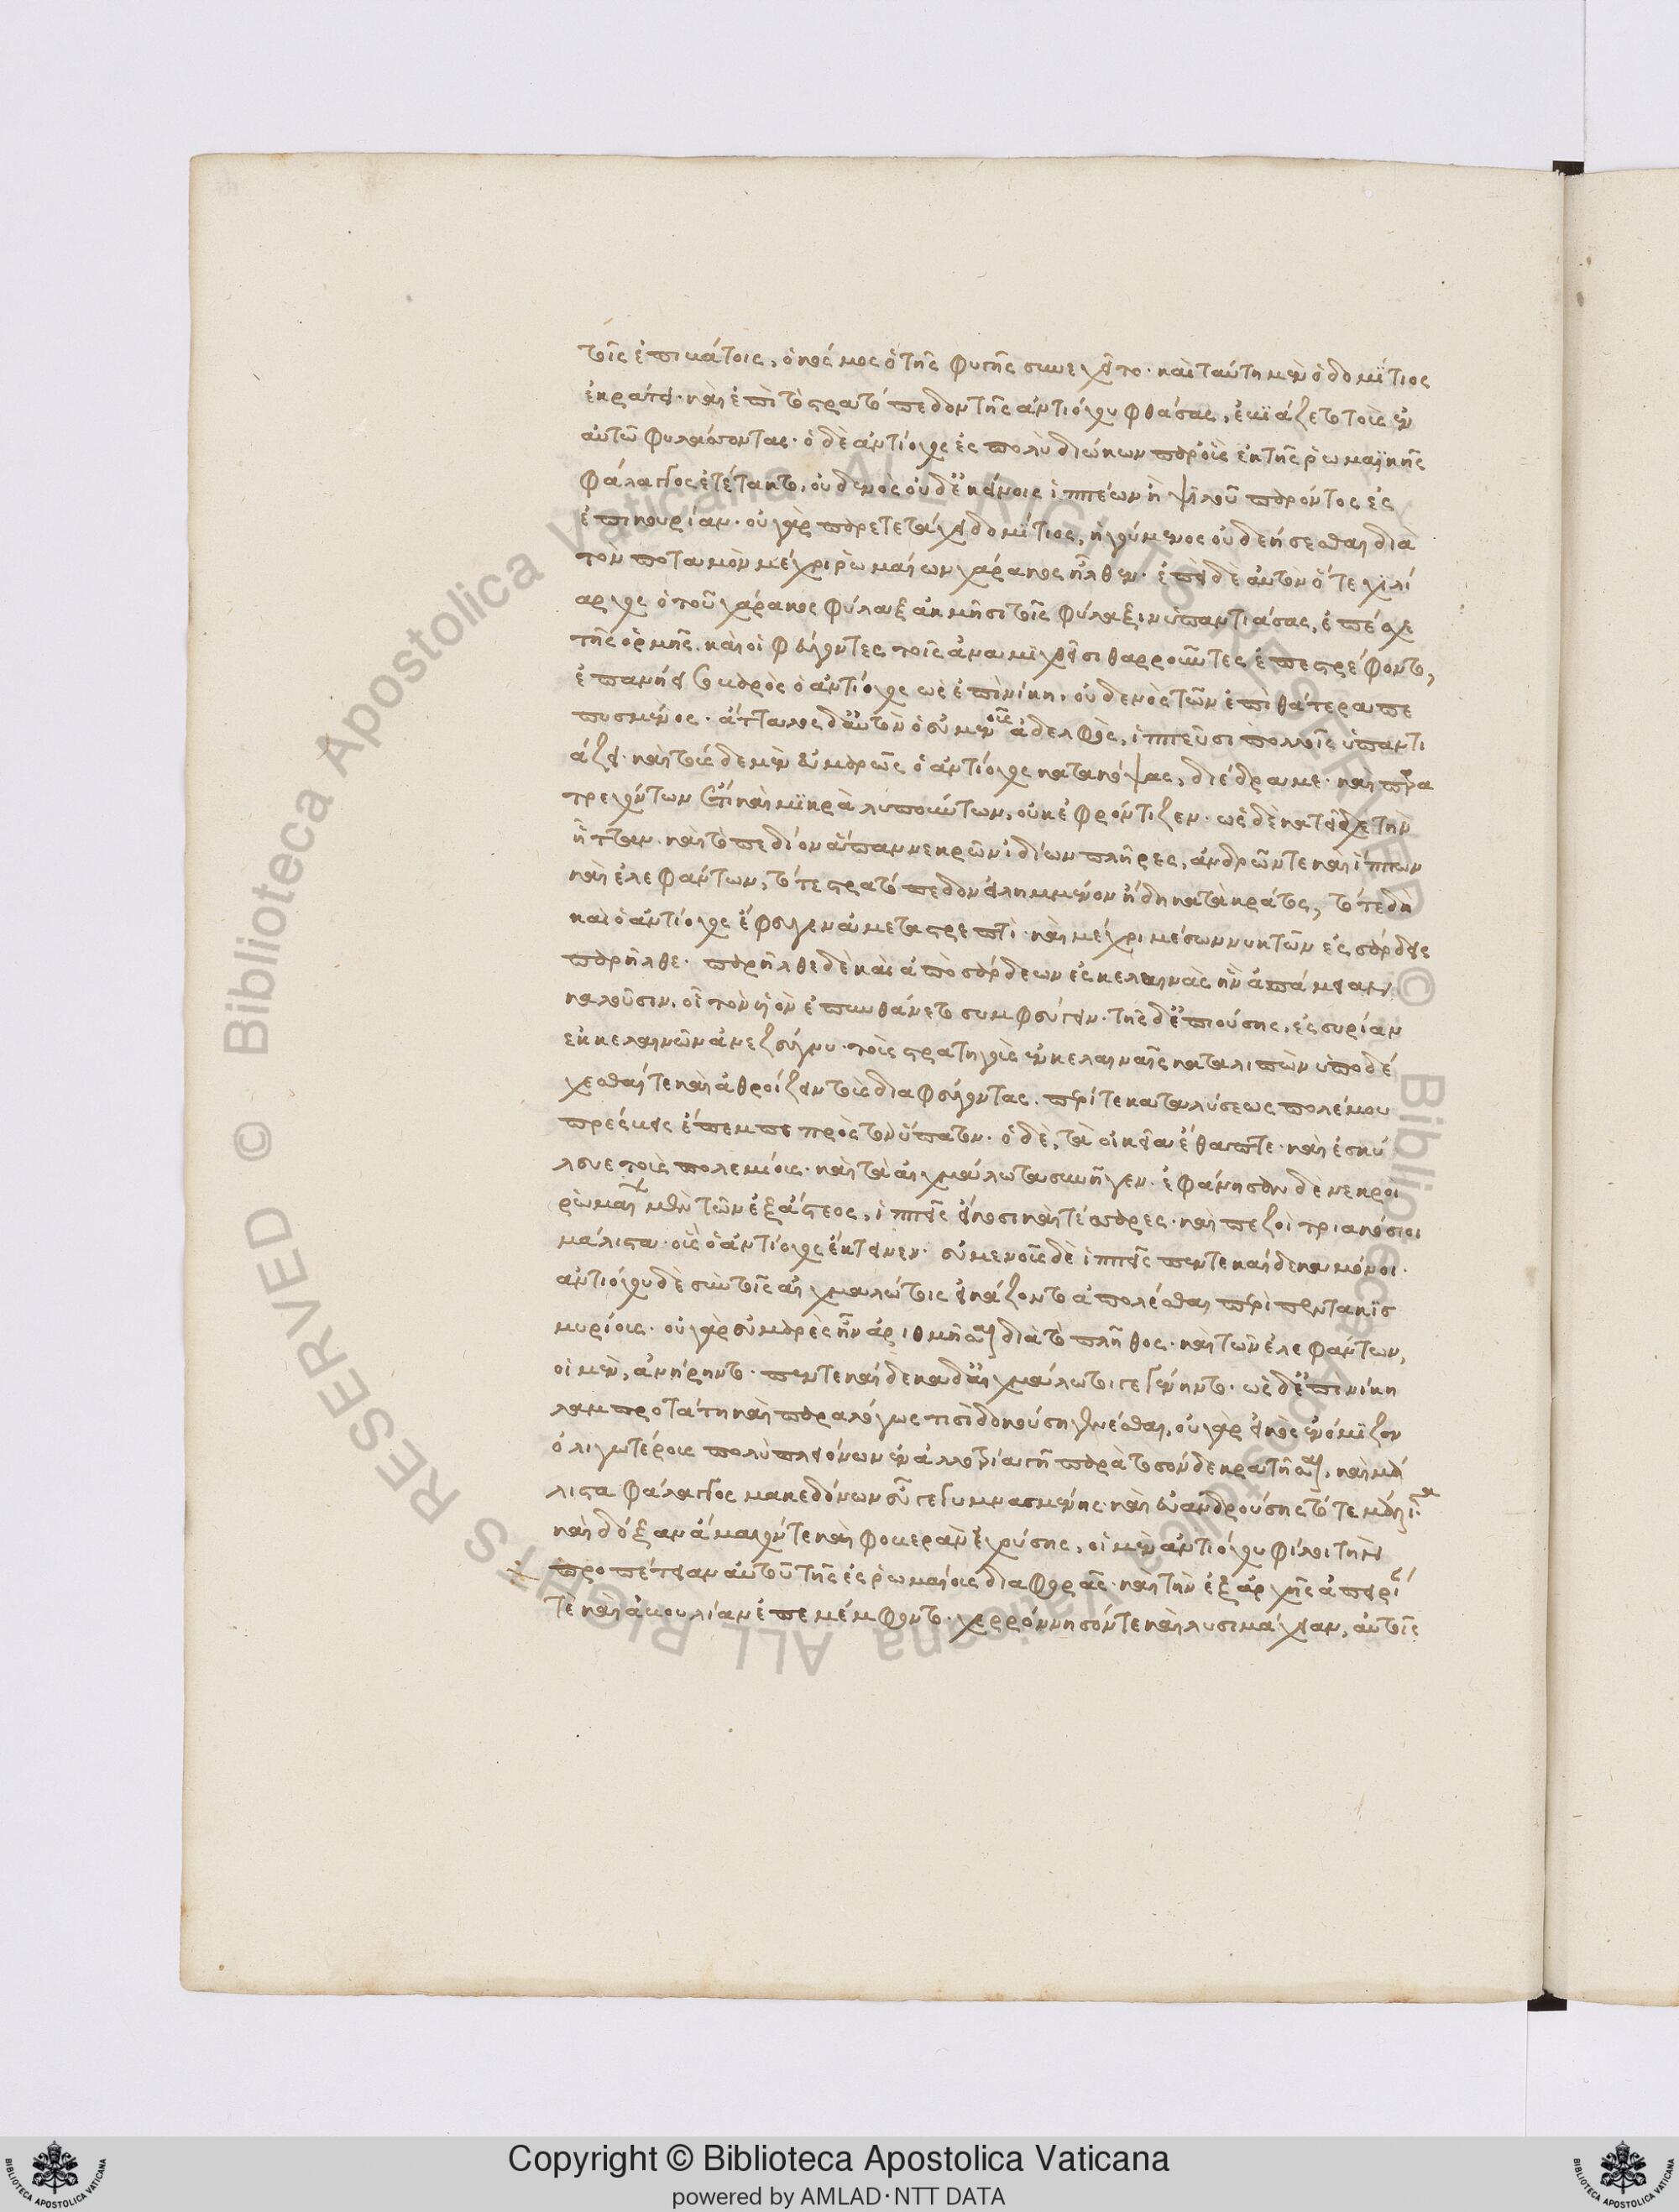 τοῖς ἐπιβάτοις, ὁ νόμος ὁ τῆς φυγῆς συνεχεῖτο· καὶ ταύτῃ μὲν ὁ δομίτιος
ἐκράτει· καὶ ἐπὶ τὸ στρατόπεδον τῆς ἀντιόχου φθάσας, ἐβιάζετο τοὺς ἐν
αὐτῷ φυλάσσοντας· ὁ δὲ ἀντίοχος ἐς πολὺ διώκων παρ' οἷς ἐκ τῆς ῥωμαϊκῆς
φάλαγγος ἐτέτακτο, οὐδενὸς οὐδ' ἐκείνοις ἱππέων ἢ ψιλοῦ παρόντος ἐς
ἐπικουρίαν· οὐ γὰρ παρετετάχει δομίτιος, ἡγούμενος οὐ δεήσεσθαι διὰ
τὸν ποταμὸν μέχρι ῥωμαίων χάρακος ἦλθεν· ἐπεὶ δὲ αὐτὸν ὅ τε χιλί
αρχος ὁ τοῦ χάρακος φύλαξ ἀκμῆσι τοῖς φύλαξιν ὑπαντιάσας, ἐπέσχε
τῆς ὁρμῆς. καὶ οἱ φεύγοντες τοῖς ἀναμιχθεῖσι θαρροῦντες ἐπεστρέφοντο,
ἐπανῄει σοβαρὸς ὁ ἀντίοχος ὡς ἐπὶ νίκῃ, οὐδενὸς τῶν ἐπὶ θάτερα πε
πυσμένος· ἄτταλος δ' αὐτὸν ὁ εὐμένους ἀδελφὸς, ἱππεῦσι πολλοῖς ὑπαντι
άζει· καὶ τούσδε μὲν εὐμαρῶς ὁ ἀντίοχος κατακόψας, διέδραμε· καὶ παρα
τρεχόντων ἔτι καὶ μικρὰ λυπούντων, οὐκ ἐφρόντιζεν· ὡς δὲ κατεῖδε τὴν
ἧτταν. καὶ τὸ πεδίον ἅπαν νεκρῶν ἰδίων πλῆρες, ἀνδρῶν τε καὶ ἵππων
καὶ ἐλεφάντων, τό τε στρατόπεδον εἰλημμένον ἤδη κατὰ κράτος, τότε δὴ
καὶ ὁ ἀντίοχος ἔφευγεν ἀμεταστρεπτί· καὶ μέχρι μέσων νυκτῶν ἐς σάρδεις
παρῆλθε. παρῆλθε δὲ καὶ ἀπὸ σάρδεων ἐς κελαινὰς ἣν ἀπάμειαν
καλοῦσιν, οἷ τὸν υἱὸν ἐπυνθάνετο συμφυγεῖν. τῆς δ' ἐπιούσης, ἐς συρίαν
ἐκ κελαινῶν ἀνεζεύγνυ· τοὺς στρατηγοὺς ἐν κελαιναῖς καταλιπὼν ὑποδέ
χεσθαί τε καὶ ἀθροίζειν τοὺς διαφεύγοντας. περί τε καταλύσεως πολέμου
πρέσβεις ἔπεμπε πρὸς τὸν ὕπατον. ὁ δὲ, τὰ οἰκεῖα ἔθαπτε· καὶ ἐσκύ
λευε τοὺς πολεμίους· καὶ τὰ αἰχμάλωτα συνῆγεν. ἐφάνησαν δὲ νεκροὶ
ῥωμαίων μὲν τῶν ἐξ ἄστεος, ἱππεῖς εἴκοσι καὶ τέσσαρες· καὶ πεζοὶ τριακόσιοι
μάλιστα· οὓς ὁ ἀντίοχος ἔκτεινεν· εὐμένους δὲ ἱππεῖς πεντεκαίδεκα μόνοι.
ἀντιόχου δὲ σὺν τοῖς αἰχμαλώτοις εἰκάζοντο ἀπολέσθαι περὶ πεντακισ
μυρίους. οὐ γὰρ εὐμαρὲς ἦν ἀριθμῆσαι διὰ τὸ πλῆθος· καὶ τῶν ἐλεφάντων,
οἱ μὲν, ἀνῄρηντο· πεντεκαίδεκα δ' αἰχμάλωτοι ἐγεγένηντο. ὡς δ' ἐπὶ νίκῃ
λαμπροτάτῃ καὶ παραλόγως τισὶ δοκούσῃ γενέσθαι, οὐ γὰρ εἰκὸς ἐνόμιζον
ὀλιγωτέρους πολὺ πλειόνων ἐν ἀλλοτρίᾳ γῇ παρὰ τοσόνδε κρατῆσαι, καὶ μά
λιστα φάλαγγος μακεδόνων εὖ γεγυμνασμένης καὶ εὐανδρούσης τότε μάλιστα
καὶ δόξαν ἄμαχόν τε καὶ φοβερὰν ἐχούσης, οἱ μὲν ἀντιόχου φίλοι τὴν
προπέτειαν αὐτοῦ τῆς ἐς ῥωμαίους διαφορᾶς· καὶ τὴν ἐξ ἀρχῆς ἀπειρίαν
τὲ καὶ ἀβουλίαν ἐπεμέμφοντο. χερρόνησόν τε καὶ λυσιμάχειαν, αὐτοῖς